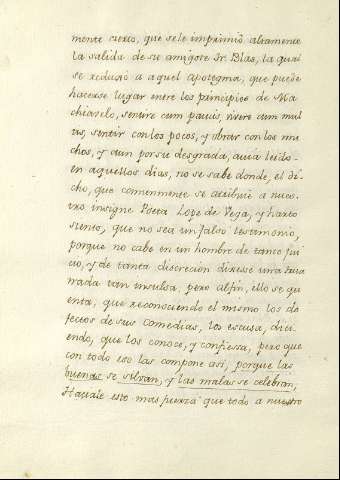 mente cierto, que sele imprimiò altamente
la salida de su amigote Fr. Blas, la qual
se reduxò a aquel apotegma, que puede
hacerse lugar entre los principios de Ma
chiavelo, sentire cum paucis, vivere cum mul
tis, sentir con los pocos, y obrar con los mu
chos, y aun por su desgracia, avia leido
en aquellos dias, no se sabe donde, el di
cho, que comunmente se atribuie a nues
tro insigne Poeta Lope de Vega, y harto
siento, que no sea un falso testimonio,
porque no cabe en un hombre de tanto jui
cio, y de tanta discrecion dixese una trua
nada tan insulsa. pero alfin, ello se qu
enta, que reconociendo el mismo los de
fectos de sus comedias, los escusa, dici
endo, que los conoce, y confiessa, pero que
con todo eso las compone asi, porque las
buenas se silvan, y las malas se celebran,
Haciale esto mas fuerza que todo a nuestro